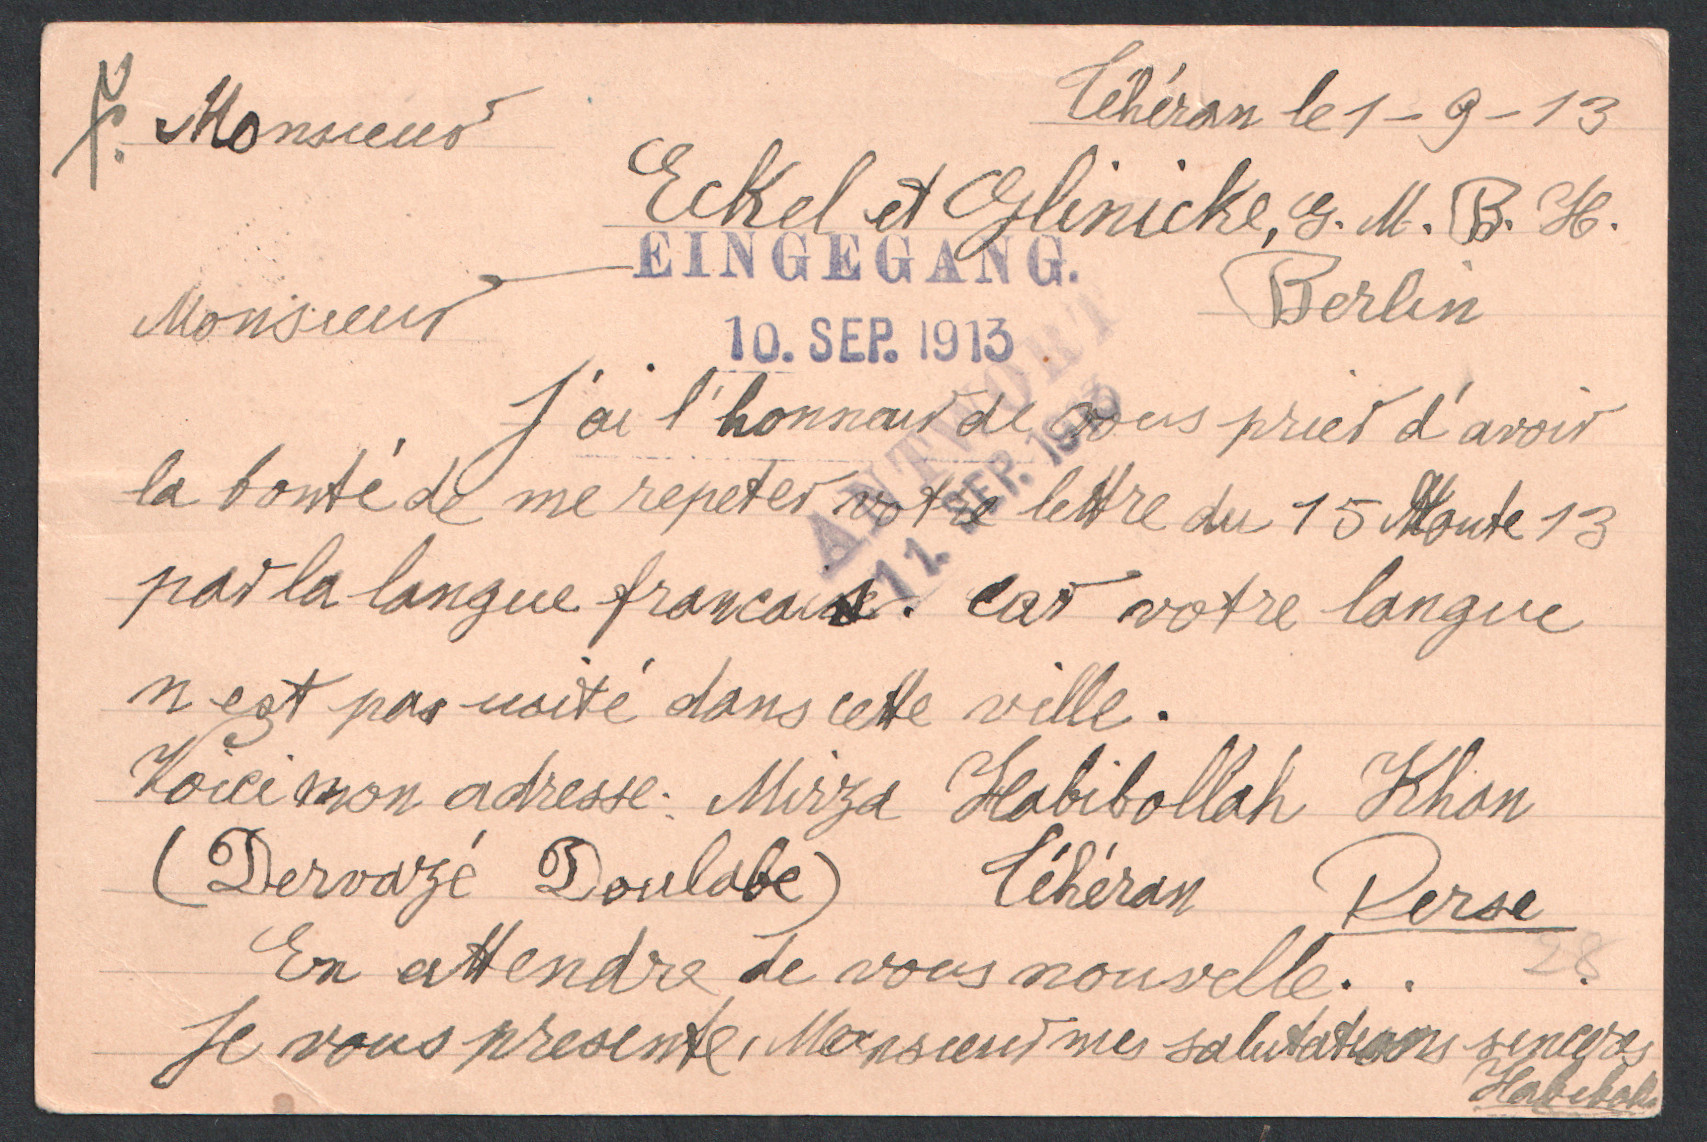 Téhéran le 1-9-13
Monsieur
Eckel et Glinicke, G. M. B. H.
EINGEGANG.
Berlin
Monsieur
10. SEP. 1913
ANTWORT
11. SEP. 1913
J'ai l'honneur de vous prier d'avoir
la bonté de me repeter votre lettre du 15 Aoute 13
par la langue francaise. car votre langue
n est pas usité dans cette ville.
Voici mon adresse: Mirza Habibollah Khan
(Dervazé Doulabe) Téhéran Perse
28
En attendre de vous nouvelle. . .
Je vous presente, Monsieur mes salutations sinceres